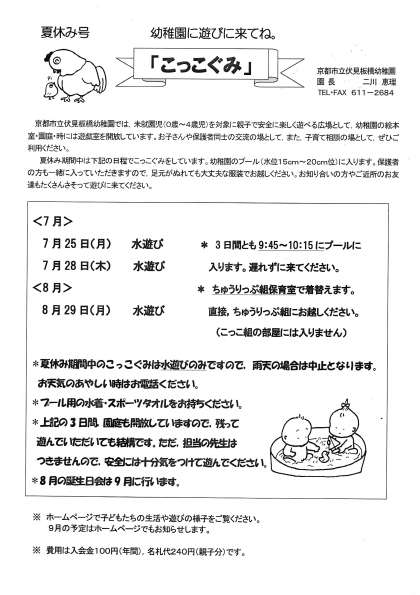 夏休み号
幼稚園に遊びに来てね。
「こっこぐみ」
京都市立伏見板橋幼稚園
園長 二川 恵理
TEL・FAX 611－2684
京都市立伏見板橋幼稚園では、未就園児（０歳～４歳児）を対象に親子で安全に楽しく遊べる広場として、幼稚園の絵本
室・園庭・時には遊戯室を開放しています。お子さんや保護者同士の交流の場として、また、子育て相談の場として、ぜひご
利用ください。
夏休み期間中は下記の日程でこっこぐみをしています。幼稚園のプール（水位15cm～20cm位）に入ります。保護者
の方も一緒に入っていただきますので、足元がぬれても大丈夫な服装でお越しください。お知り合いの方やご近所のお友
達もたくさんさそって遊びに来てください。
＜７月＞
７月25日（月） 水遊び ＊ ３日間とも9:45～10:15にプールに
７月28日（木） 水遊び 入ります。遅れずに来てください。
＜８月＞ ＊ ちゅうりっぷ組保育室で着替えます。
８月29日（月） 水遊び 直接，ちゅうりっぷ組にお越しください。
（こっこ組の部屋には入りません）
＊夏休み期間中のこっこぐみは水遊びのみですので，雨天の場合は中止となります。
お天気のあやしい時はお電話ください。
＊プール用の水着・スポーツタオルをお持ちください。
＊上記の３日間，園庭も開放していますので，残って
遊んでいただいても結構です。ただ，担当の先生は
つきませんので，安全には十分気をつけて遊んでください。
＊８月の誕生日会は９月に行います。
※ ホームページで子どもたちの生活や遊びの様子をご覧ください。
９月の予定はホームページでもお知らせします。
※ 費用は入会金100円（年間），名札代240円（親子分）です。